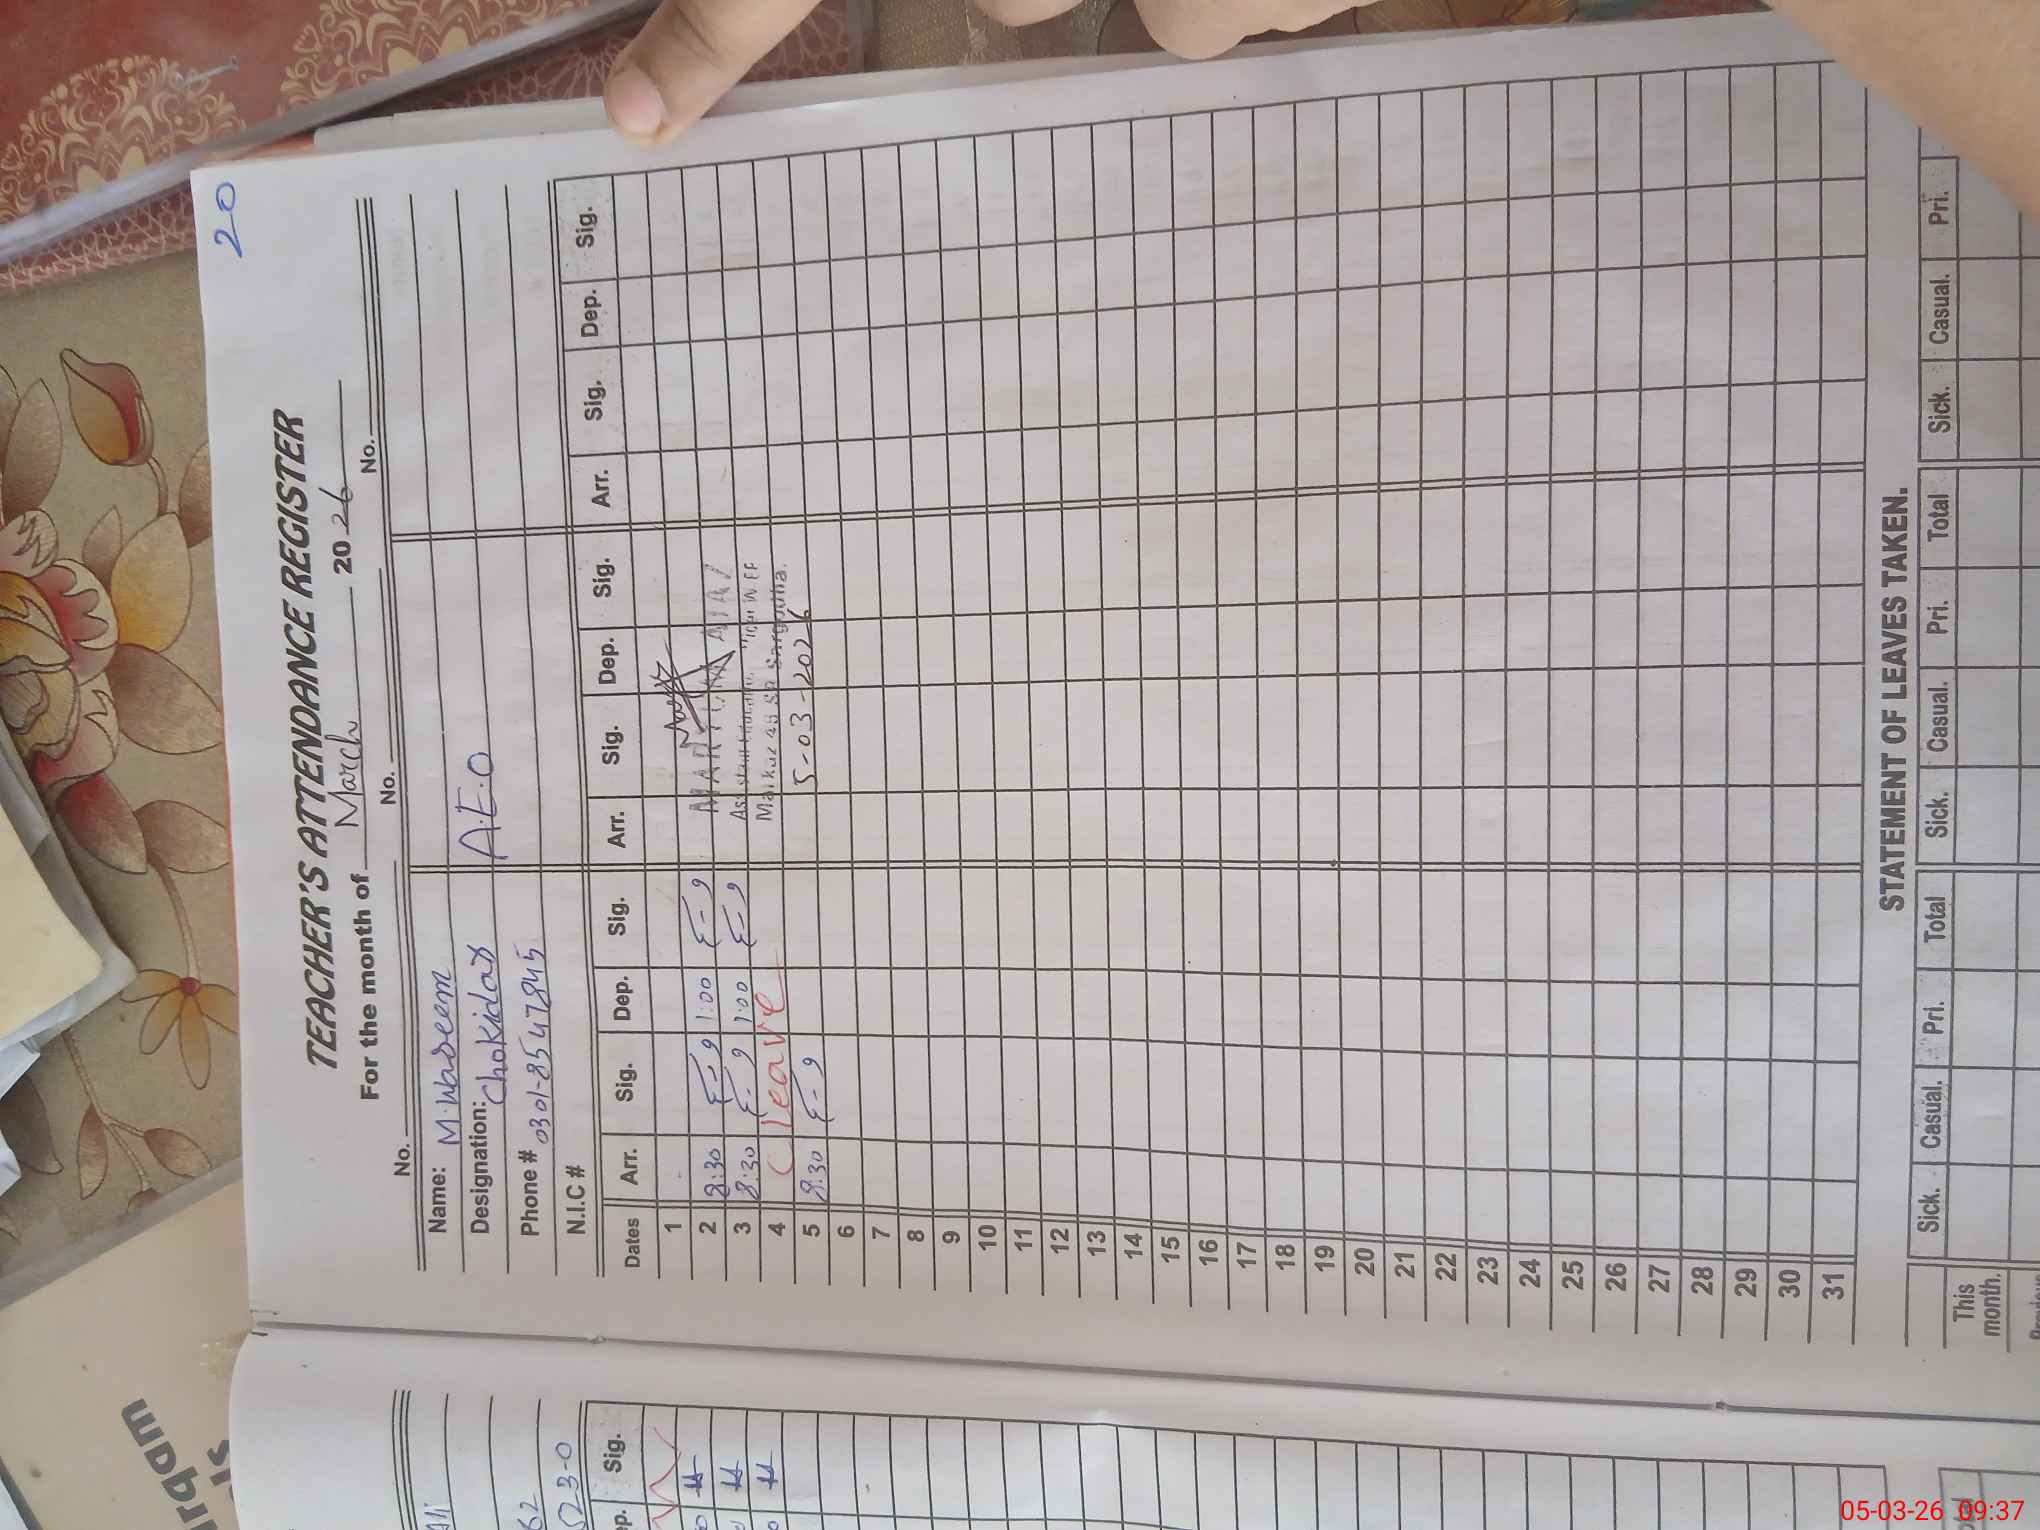 20
TEACHER'S ATTENDANCE REGISTER
For the month of March 2026
No. No. No.
Name: M. Waseem
Designation: Chokidar A.E.O
Phone # 0301-8547845
N.I.C #
Dates Arr. Sig. Dep. Sig. Arr. Sig. Dep. Sig. Arr. Sig. Dep. Sig.
1
2 8:30 1:00
3 8:30 1:00
4 C leave
5 8:30 5-03-2026
6
7
8
9
10
11
12
13
14
15
16
17
18
19
20
21
22
23
24
25
26
27
28
29
30
31
Markaz Sargodha.
STATEMENT OF LEAVES TAKEN.
Sick. Casual. Pri. Total Sick. Casual. Pri. Total Sick. Casual. Pri.
This month.
Sig.
523-0
05-03-26 09:37